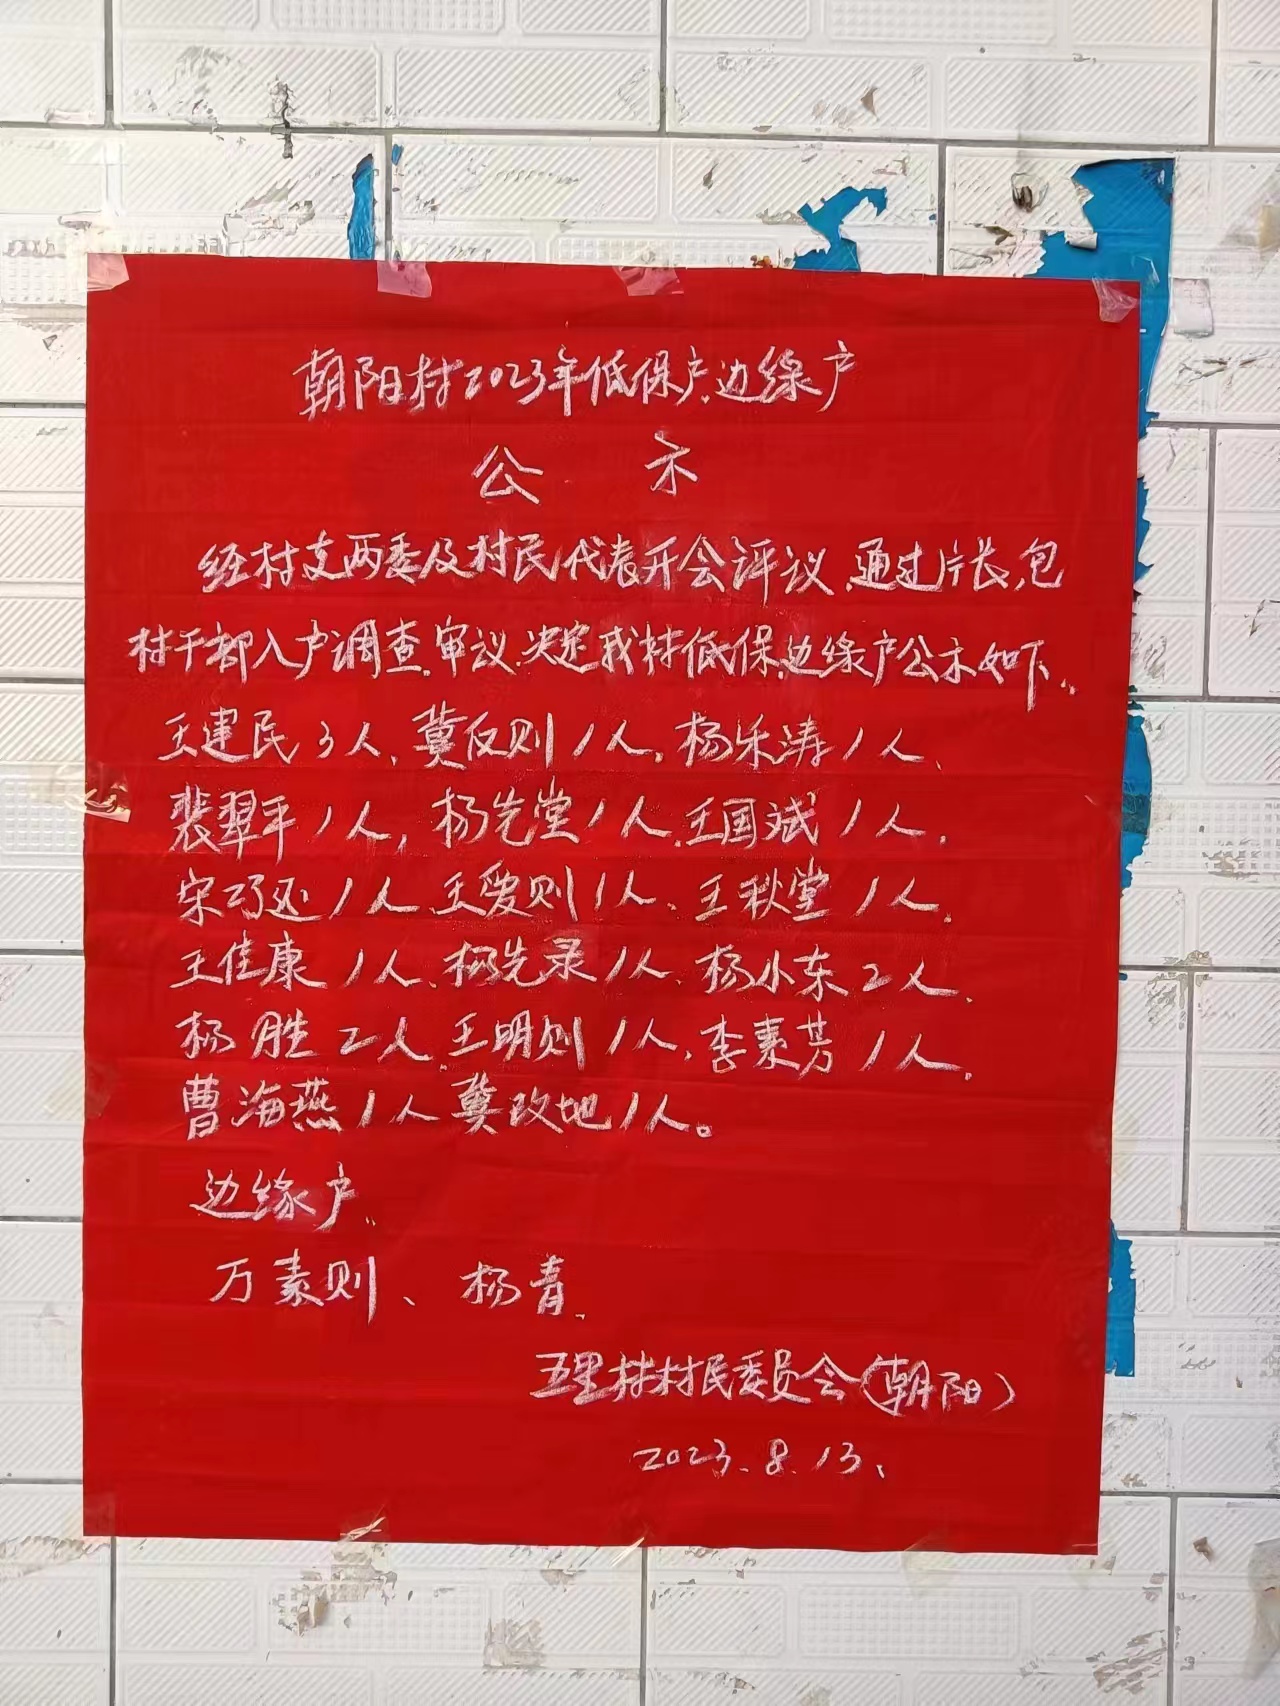 朝阳村2023年低保户.边缘户
公 示
经村支两委及村民代表开会评议.通过片长.包
村干部入户调查.审议.决定我村低保.边缘户公示如下.
王建民3人.冀反则1人.杨乐涛1人.
裴翠平1人,杨先堂1人.王国斌1人.
宋巧还1人.王爱则1人、王秋堂1人.
王佳康1人.杨先录1人.杨小东2人.
杨胜2人.王明则1人.李素芳1人.
曹海燕1人冀改地1人。
边缘户.
万素则、杨青.
五里林村民委员会(朝阳)
2023.8.13、